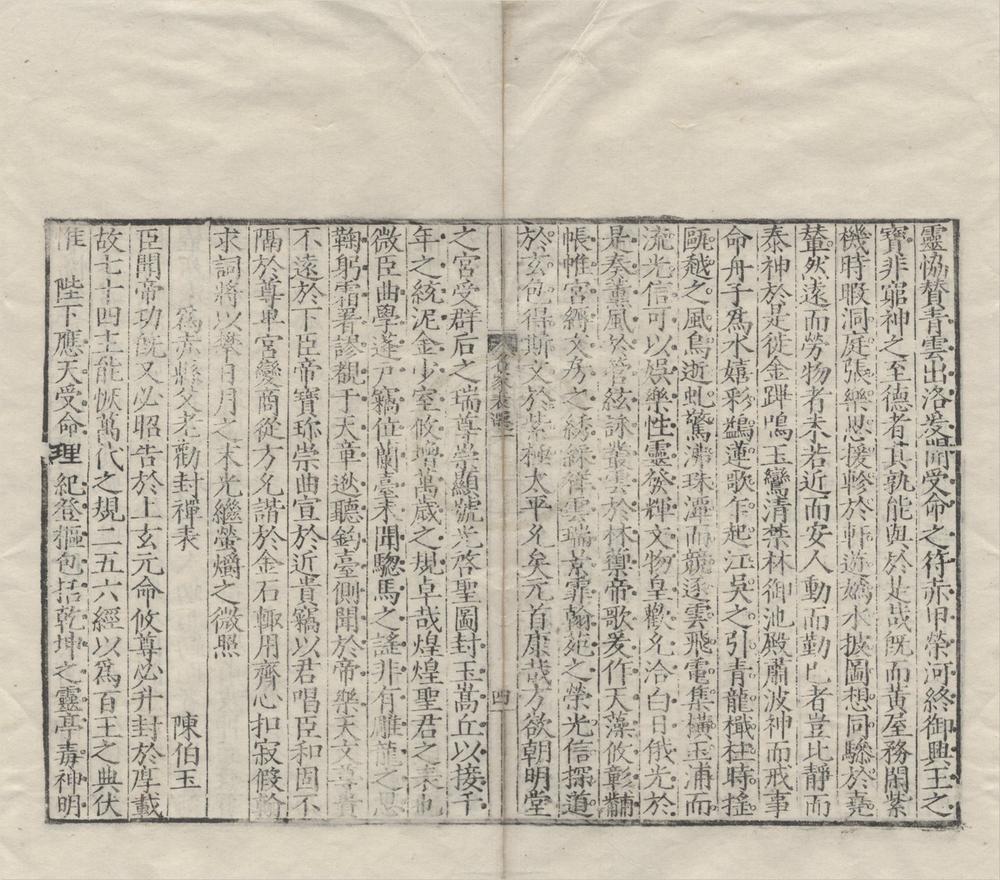 靈恊賛青雲出洛爰開受命之符赤甲榮河終御興王之
寶非窮神之至德者其孰能與於是哉既而黃屋務閑紫
機時暇洞庭張樂思援軫於軒遊嬀水披圖想同驂於堯
輦然遠而勞物者未若近而安人動而勤己者豈比靜而
泰神於是徙金蹕鳴玉鸞清禁林御池殿肅波神而戒事
命舟子為水嬉彩鷁蓮歌乍起江吳之引青龍檝桂時搖
甌越之風烏逝虬驚濟珠潭而競逐雲飛電集橫玉浦而
流光信可以娛樂性靈發輝文物皇歡允洽白日俄光於
是奏薰風於管絃詠叢雲於林籞帝歌爰作天藻攸彰黼
帳帷宮縟文房之綉綵衢雲瑞景霏翰苑之榮光信探道
於玄包得斯文於紫極太平允矣元首康哉方欲朝明堂
名家表選一
四
之宮受群后之瑞尊崇顯號光啓聖圖封玉嵩丘以接千
年之統泥金少室攸增萬歲之規卓哉煌煌聖君之表也
微臣曲學逢尸竊位蘭臺未聞驄馬之謠非有雕龍之思
鞠躬霜署謬覩于天章逖聽鈞臺側聞於帝樂天文尊貴
不遠於下臣帝寶珎崇曲宣於近貴竊以君唱臣和固不
隔於尊卑宮變商從方允諧於金石輙用齊心扣寂假翰
求詞將以攀日月之末光繼螢爝之微照
爲赤縣父老勸封禪表
陳伯玉
臣聞帝功旣又必昭告於上玄元命攸尊必升封於厚載
故七十四王能恢萬代之規二五六經以爲百王之典伏
惟 陛下應天受命理紀登樞包括乾坤之靈亭毒神明